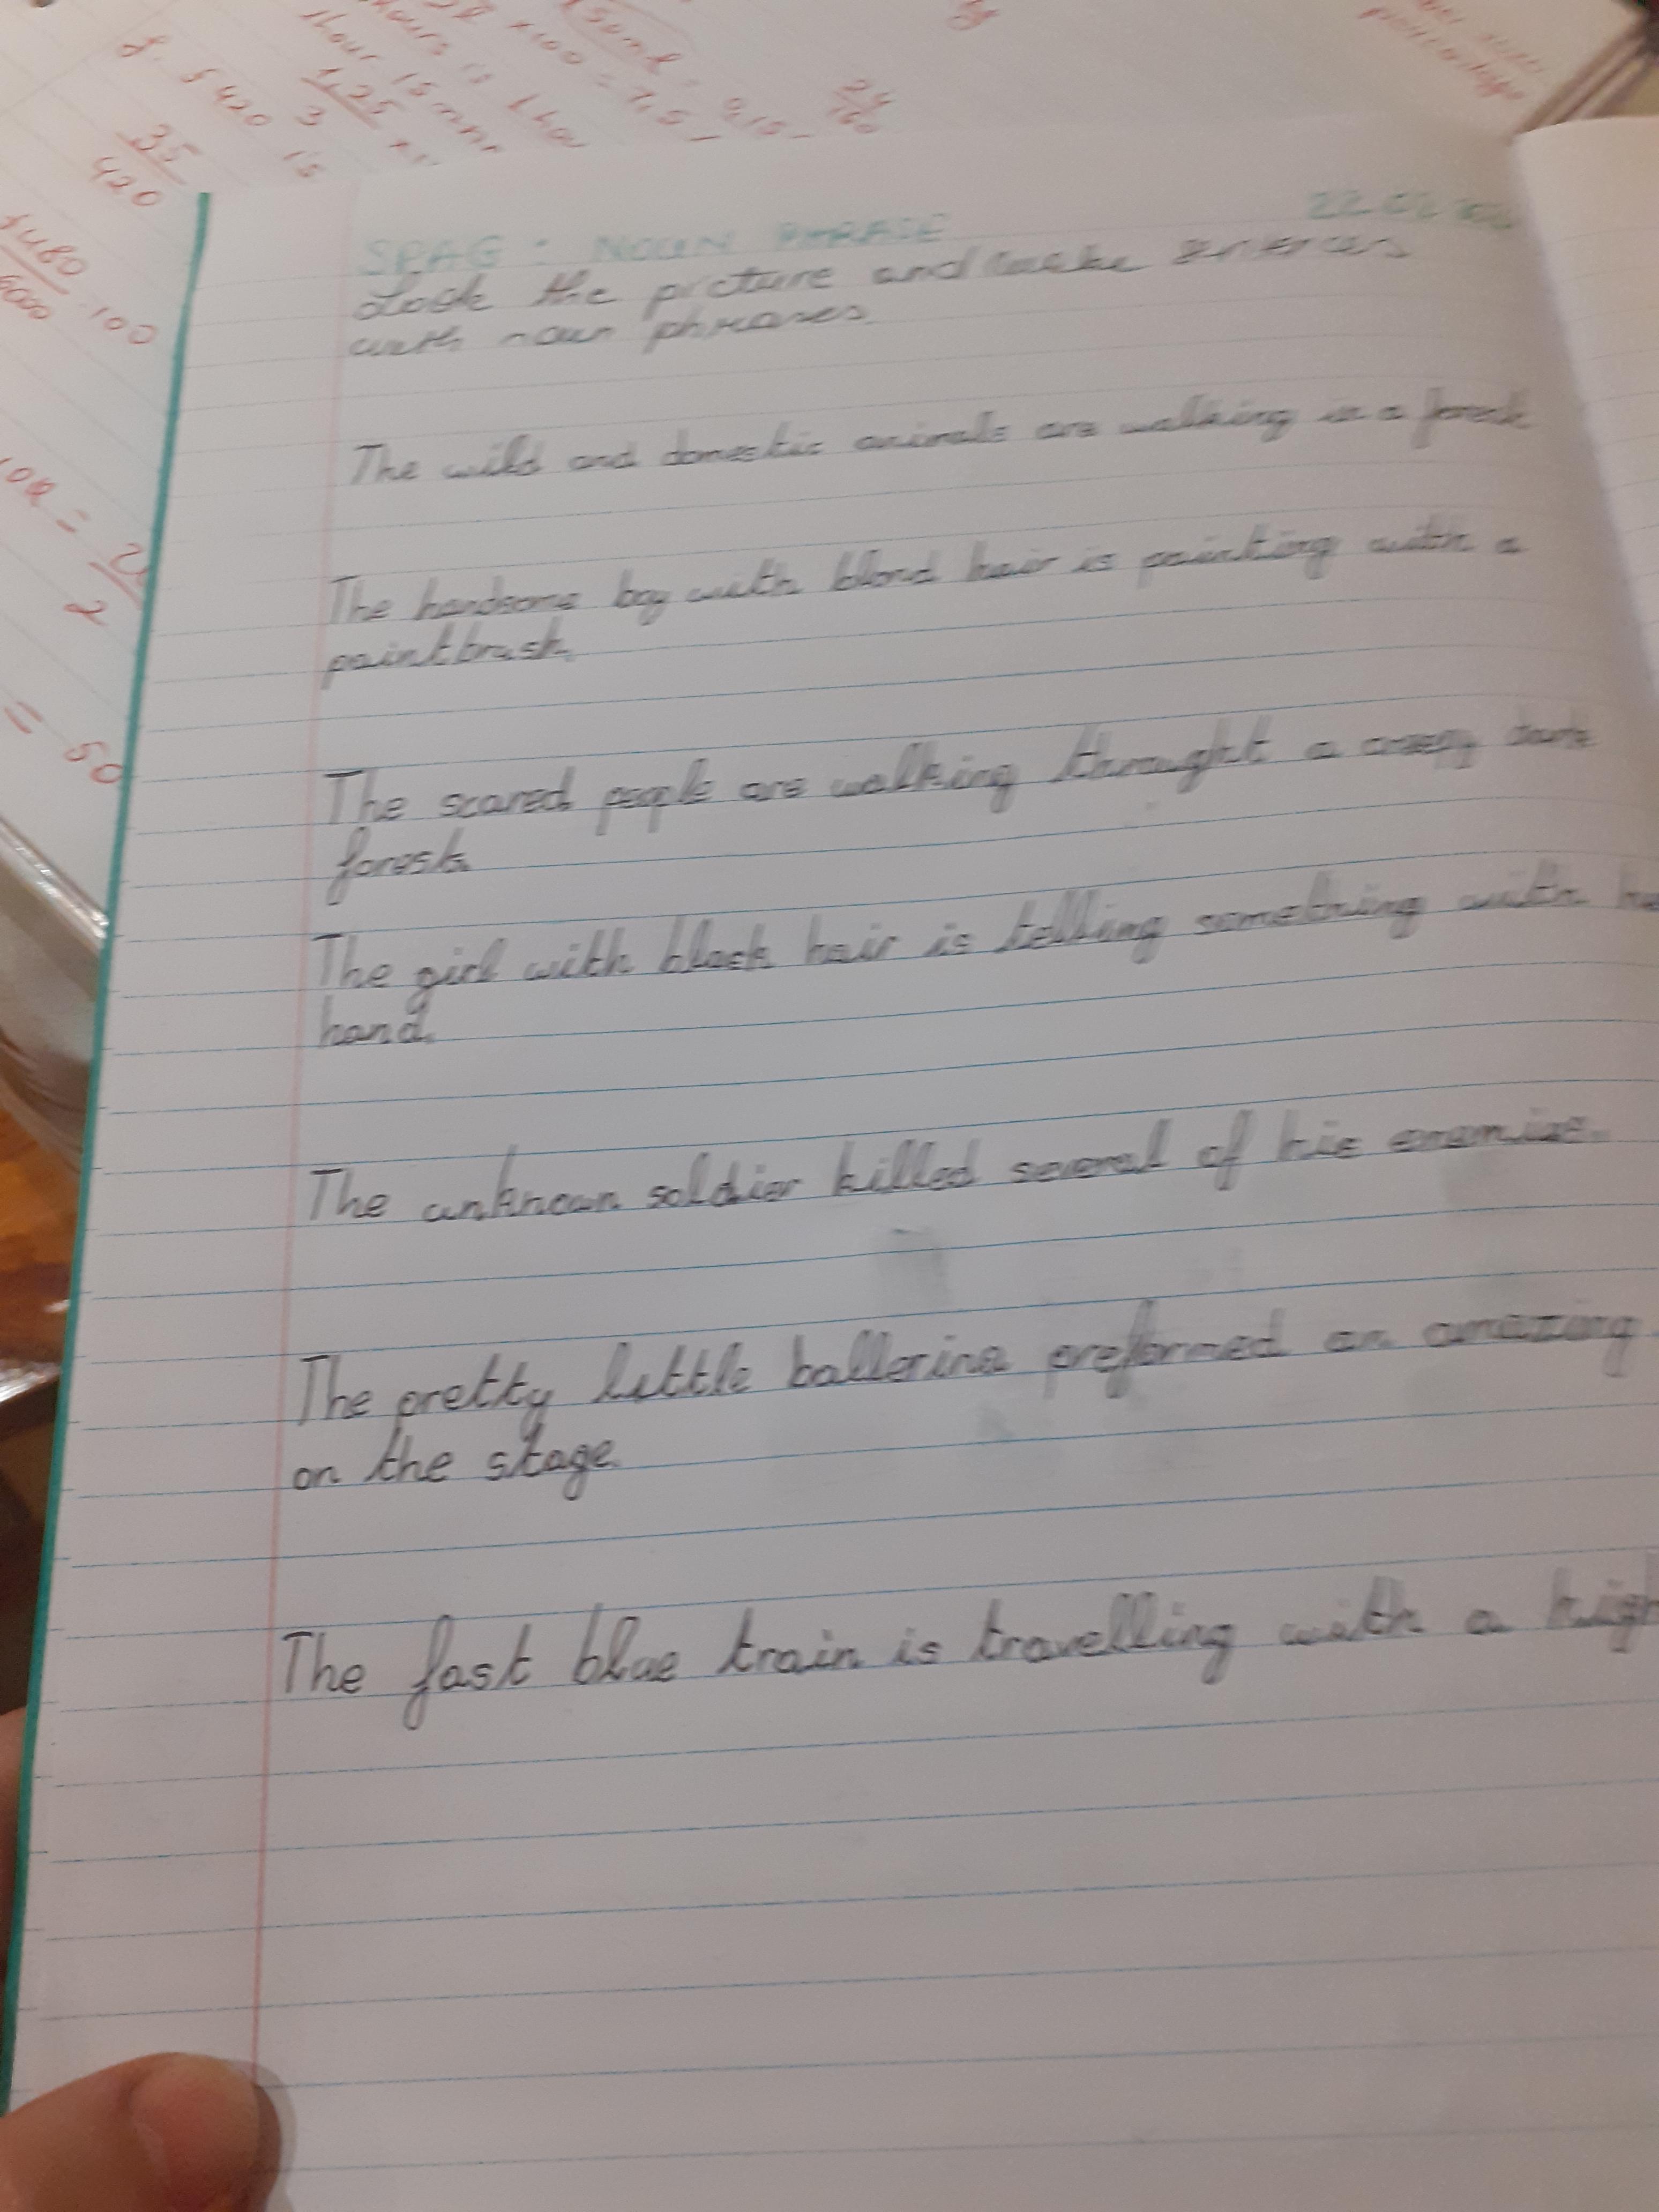 f. 5420 is
35
420
100
= 50
SPAG : NOUN PHRASE
Look the picture and make sentences
with noun phrases
The wild and domestic animals are walking in a forest
The handsome boy with blond hair is painting with a
paintbrush.
The scared people are walking throught a creepy dark
forest.
The girl with black hair is telling something with
hand.
The unknown soldier killed several of his enemies.
The pretty little ballerina preformed an amazing
on the stage.
The fast blue train is travelling with a high